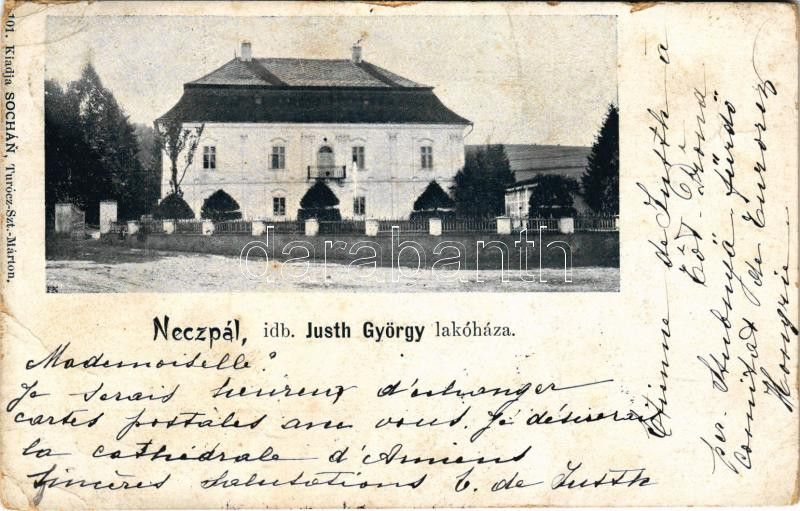 101. Kiadja SOCHÁŇ, Turócz-Szt.-Márton.
darabanth
FK
Neczpál, idb. Justh György lakóháza.
Mademoiselle!
Je serais heureux d'echanger
cartes postales avec vous. Je désirerais
la cathédrale d'Amiens
Sincères salutations E. de Justh
Etienne de Justh à
Kót Próna
per. Stubnya fürdő
comitat de Turocz
Hongrie